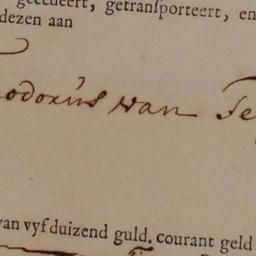 gecedeert, getransporteert, en
dezen aan
odorus van Te
van vyf duizend guld. courant geld